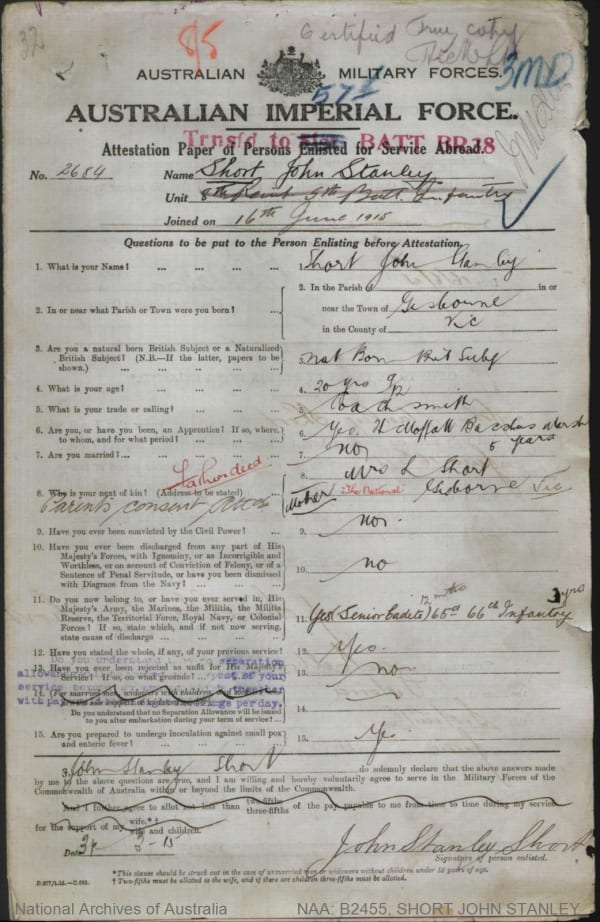 32
8/5
Certified True copy
AUSTRALIAN MILITARY FORCES.
3MD
57th
AUSTRALIAN IMPERIAL FORCE.
Trnsf'd to BATT BR 18
Attestation Paper of Persons Enlisted for Service Abroad.
No. 2684 Name Short, John Stanley
Unit 8th Reinf 5th Batt. Infantry
Joined on 16th June 1915
Questions to be put to the Person Enlisting before Attestation.
1. What is your Name? ... ... ... ... 1. Short John Stanley
2. In or near what Parish or Town were you born? ... 2. In the Parish of in or
near the Town of Gisborne
in the County of Vic
3. Are you a natural born British Subject or a Naturalized British Subject? (N.B.—If the latter, papers to be shown.) ... 3. Nat Born Brit Subj
4. What is your age? ... 4. 20 yrs 9/12
5. What is your trade or calling? ... 5. Coachsmith
6. Are you, or have you been, an Apprentice? If so, where, to whom, and for what period? ... 6. Yes. H Moffatt Bacchus Marsh
5 years
7. Are you married? ... 7. no
Father deed
8. Who is your next of kin? (Address to be stated) ... 8. Mrs L Short
Mother "The National" Gisborne Vic
Parents consent
9. Have you ever been convicted by the Civil Power? ... 9. no.
10. Have you ever been discharged from any part of His Majesty's Forces, with Ignominy, or as Incorrigible and Worthless, or on account of Conviction of Felony, or of a Sentence of Penal Servitude, or have you been dismissed with Disgrace from the Navy? ... 10. no
11. Do you now belong to, or have you ever served in, His Majesty's Army, the Marines, the Militia, the Militia Reserve, the Territorial Force, Royal Navy, or Colonial Forces? If so, state which, and if not now serving, state cause of discharge ... 11. Yes (Senior Cadets) 12 mths 65th 66th Infantry 3 yrs
12. Have you stated the whole, if any, of your previous service? 12. Yes.
13. Have you ever been rejected as unfit for His Majesty's Service? If so, on what grounds? ... 13. no.
Do you understand separation
allow post of your
service
with pay per day.
14. (For married men, widowers with children and
Do you understand that no Separation Allowance will be issued to you after embarkation during your term of service? ... 14.
15. Are you prepared to undergo inoculation against small pox and enteric fever? ... 15. Yes.
I, John Stanley Short do solemnly declare that the above answers made
by me to the above questions are true, and I am willing and hereby voluntarily agree to serve in the Military Forces of the
Commonwealth of Australia within or beyond the limits of the Commonwealth.
And I further agree to allot not less than two-fifths three-fifths of the pay payable to me from time to time during my service
for the support of my wife.*† wife and children.
Date 3-15
John Stanley Short
Signature of person enlisted.
*This clause should be struck out in the case of unmarried men or widowers without children under 18 years of age.
† Two-fifths must be allotted to the wife, and if there are children three-fifths must be allotted.
National Archives of Australia NAA: B2455, SHORT JOHN STANLEY